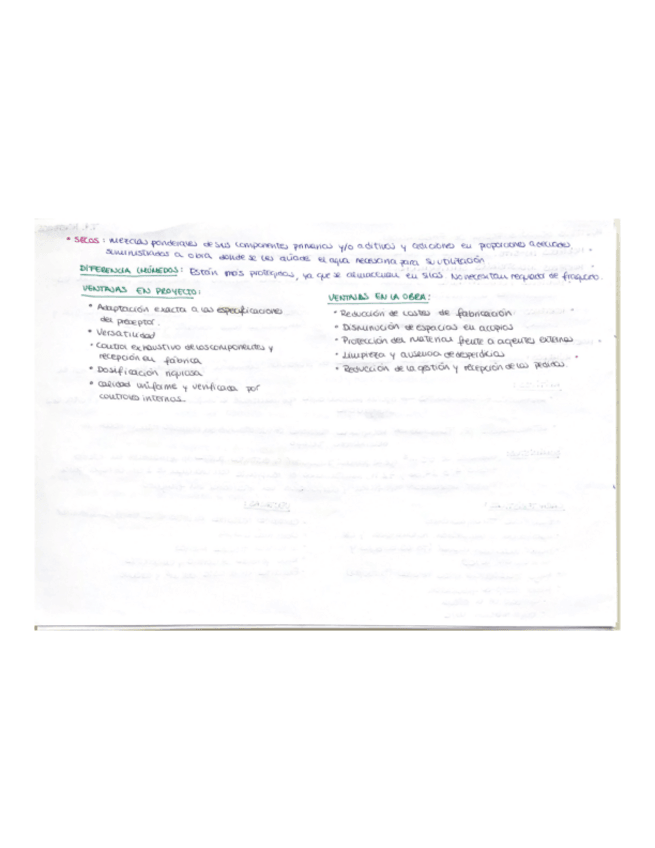 • SECOS: mezclas ponderales de sus componentes primarios y/o aditivos y adiciones en proporciones adecuadas,
suministrados a obra donde se les añade el agua necesaria para su utilización
DIFERENCIA HÚMEDOS: Están más protegidos, ya que se almacenan en silos. No necesitan regulador de fraguado.
VENTAJAS EN PROYECTO:
• Adaptación exacta a las especificaciones
del preceptor.
• Versatilidad
• Control exhaustivo de los componentes y
recepción en fábrica
• Dosificación rigurosa
• Calidad uniforme y verificada por
controles internos.
VENTAJAS EN LA OBRA:
• Reducción de costes de fabricación
• Disminución de espacios en acopios
• Protección del material frente a agentes externos
• Limpieza y ausencia de desperdicios
• Reducción de la gestión y recepción de los pedidos.